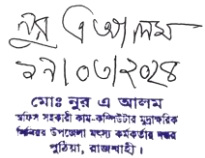 নুর এ আলম
মোঃ নুর এ আলম
অফিস সহকারী কাম-কম্পিউটার মুদ্রাক্ষরিক
সিনিয়র উপজেলা মৎস্য কর্মকর্তার দপ্তর
পুঠিয়া, রাজশাহী।